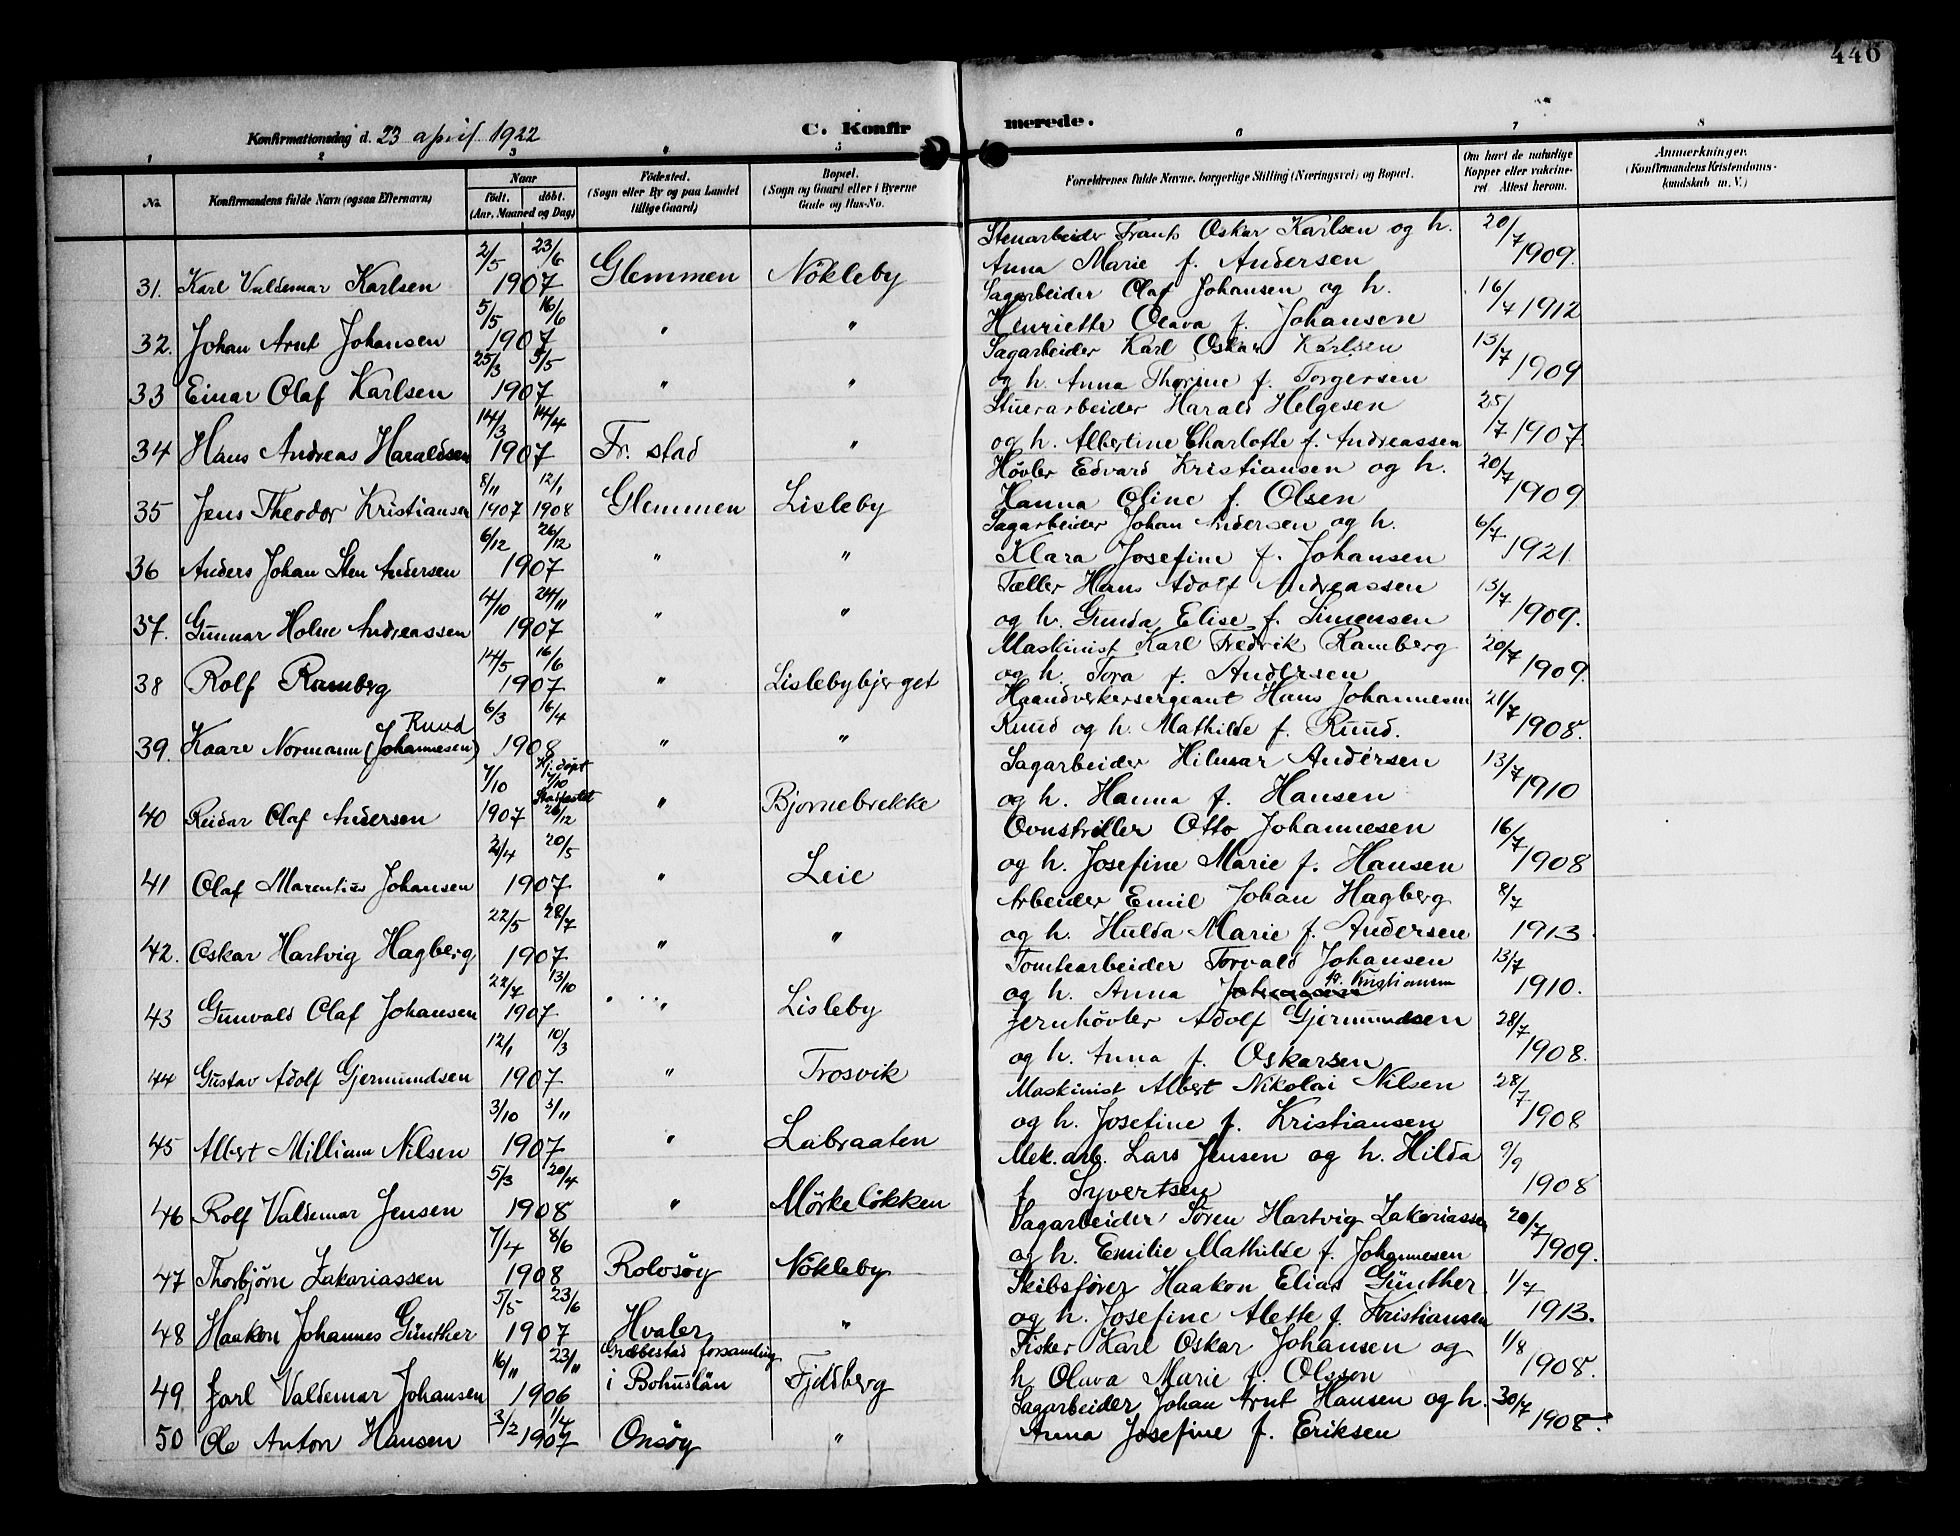 446
Konfirmationsdag d. 23 april 1922
C. Konfirmerede.
1 2 3 4 5 6 7 8
No.
Konfirmandens fulde Navn (ogsaa Efternavn)
Naar
født. døbt.
(Aar, Maaned og Dag)
Fødested.
(Sogn eller By og paa Landet
tillige Gaard)
Bopæl.
(Sogn og Gaard eller i Byerne
Gade og Hus-No.
Forældrenes fulde Navne, borgerlige Stilling (Næringsvei) og Bopæl.
Om havt de naturlige
Kopper eller vakcine-
ret Attest herom.
Anmerkninger.
(Konfirmandens Kristendoms-
kundskab m. V.)
31. Karl Valdemar Karlsen 2/5 23/6 1907 Glemmen Nökleby Stenarbeider Frants Oskar Karlsen og h. 20/7
Anna Marie f. Andersen 1909.
32. Johan Arnt Johansen 5/5 16/6 1907 " " Sagarbeider Olaf Johansen og h. 16/4
Henriette Olava f. Johansen 1912
33 Einar Olaf Karlsen 25/3 5/5 1907 " " Sagarbeider Karl Oskar Karlsen 13/7
og h. Anna Thorine f. Torgersen 1909
34 Hans Andreas Haraldsen 14/3 14/4 1907 Fr. stad " Stuerarbeider Harald Helgesen 25/7
og h. Albertine Charlotte f. Andreassen 1907
35 Jens Theodor Kristiansen 8/11 1907 12/1 1908 Glemmen Lisleby Høvler Edvard Kristiansen og h. 20/7
Hanna Oline f. Olsen 1909
36 Anders Johan Sten Andersen 6/12 26/12 1907 " " Sagarbeider Johan Andersen og h. 6/7
Klara Josefine f. Johansen 1921.
37. Gunnar Holm Andreassen 4/10 24/11 1907 " " Tæller Hans Adolf Andreassen 13/7
og h. Gunda Elise f. Simensen 1909.
38 Rolf Ramberg 14/5 16/6 1907 " Lislebybjerget Maskinist Karl Fredrik Ramberg 20/7
og h. Tora f. Andersen 1909.
39. Kaare Normann (Johannesen) Ruud 6/3 16/4 1908 " " Haandverkersergeant Hans Johannesen 21/7
Ruud og h. Mathilde f. Ruud. 1908.
40 Reidar Olaf Andersen 7/10 1907 Hj. döpt 7/10 Stadfæstet 26/12 " Bjornebrekke Sagarbeider Hilmar Andersen 13/7
og h. Hanna f. Hansen 1910
41 Olaf Marentius Johansen 2/4 20/5 1907 " Leie Ovnstriller Otto Johannesen 16/7
og h. Josefine Marie f. Hansen 1908
42. Oskar Hartvig Hagberg 22/5 28/7 1907 " " Arbeider Emil Johan Hagberg 8/7
og h. Hulda Marie f. Andersen 1913.
43 Gunvald Olaf Johansen 22/7 13/10 1907 " Lisleby Tomtearbeider Torvald Johansen 13/7
og h. Anna f. Kristiansen 1910.
44 Gustav Adolf Gjermundsen 12/1 10/3 1907 " Trosvik Jernhövler Adolf Gjermundsen 28/7
og h. Anna f. Oskarsen 1908.
45 Albert Milliam Nilsen 3/10 3/11 1907 " Labraaten Maskinist Albert Nikolai Nilsen 28/7
og h. Josefine f. Kristiansen 1908
46 Rolf Valdemar Jensen 5/3 20/4 1908 " Mörkelökken Mek. arb. Lars Jensen og h. Hilda 9/9
f Syvertsen 1908
47 Thorbjørn Zakariassen 7/4 8/6 1908 Rolvsöy Nökleby Sagarbeider Sören Hartvig Zakariassen 20/7
og h. Emilie Mathilde f. Johannesen 1909.
48 Haakon Johannes Günther 5/5 23/6 1907 Hvaler " Skibsfører Haakon Elias Günther 1/7
og h. Josefine Alette f. Kristiansen 1913.
49. Jarl Valdemar Johansen 16/11 23/11 1906 Grebbestad forsamling i Bohuslän Fjeldberg Fisker Karl Oskar Johansen og 1/8
h Olava Marie f. Olsson 1908.
50 Ole Anton Hansen 3/2 1/4 1907 Onsöy " Sagarbeider Johan Arnt Hansen og h. 30/7
Anna Josefine f. Eriksen 1908.